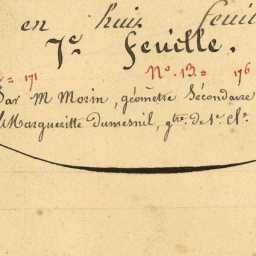 en huit feuil
7e Feuille.
= 171 No. 13 = 176
Par M Morin, géomètre Sécondaire
Margueritte Dumesnil, gtre. de 1e. Cl.